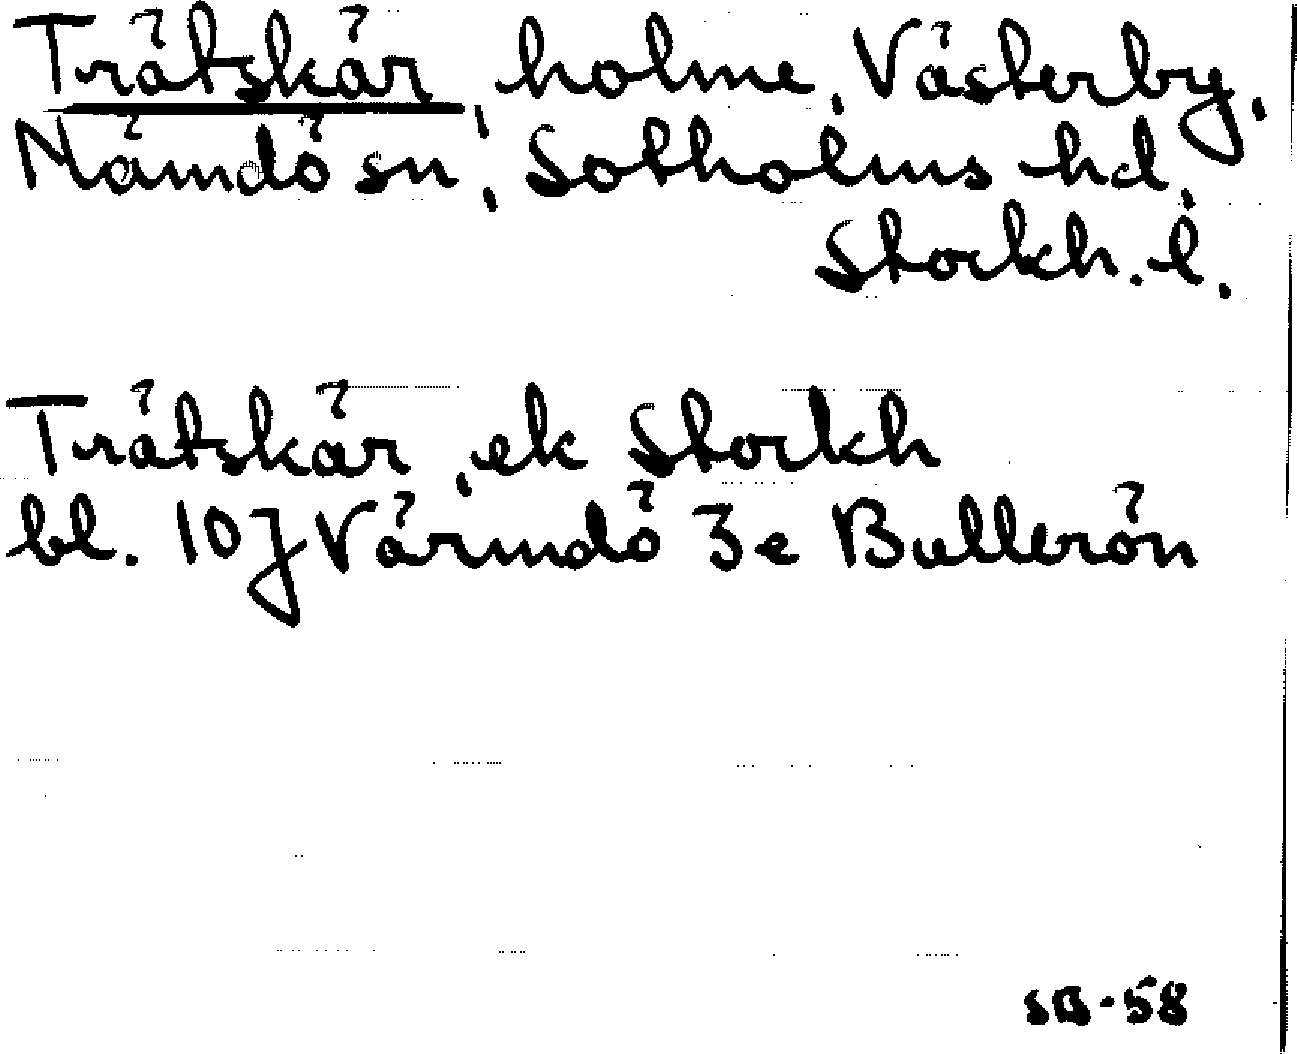 Trätskär, holme, Västerby,
Nämdö sn, Sotholms hd,
Stockh. l.
Trätskär, ek Stockh
bl. 10J Värmdö 3e Bullerön
SB-58